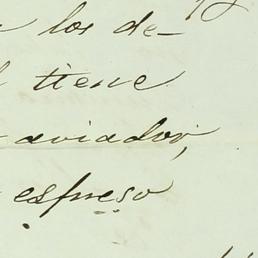 los de-
tiene
aviador,
espreso